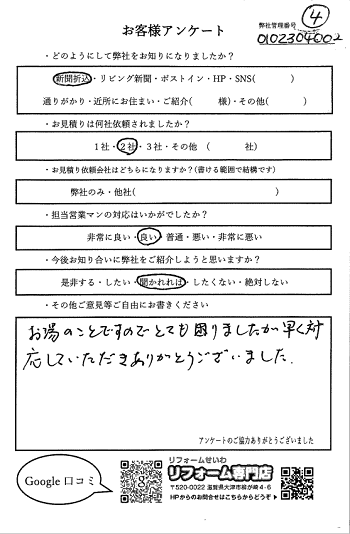 ④
お客様アンケート
弊社管理番号
0102304002
・どのようにして弊社をお知りになりましたか？
新聞折込・リビング新聞・ポストイン・HP・SNS( )
通りがかり・近所にお住まい・ご紹介( 様)・その他( )
・お見積りは何社依頼されましたか？
1社・2社・3社・その他 ( 社)
・お見積り依頼会社はどちらになりますか？(書ける範囲で結構です)
弊社のみ・他社( )
・担当営業マンの対応はいかがでしたか？
非常に良い・良い・普通・悪い・非常に悪い
・今後お知り合いに弊社をご紹介しようと思いますか？
是非する・したい・聞かれれば・したくない・絶対しない
・その他ご意見等ご自由にお書きください
お湯のことですのでとても困りましたが早く対
応していただきありがとうございました.
アンケートのご協力ありがとうございました
Google 口コミ
リフォームせいわ
リフォーム専門店
〒520-0022 滋賀県大津市柳が崎4-6
HPからのお問合せはこちらからどうぞ